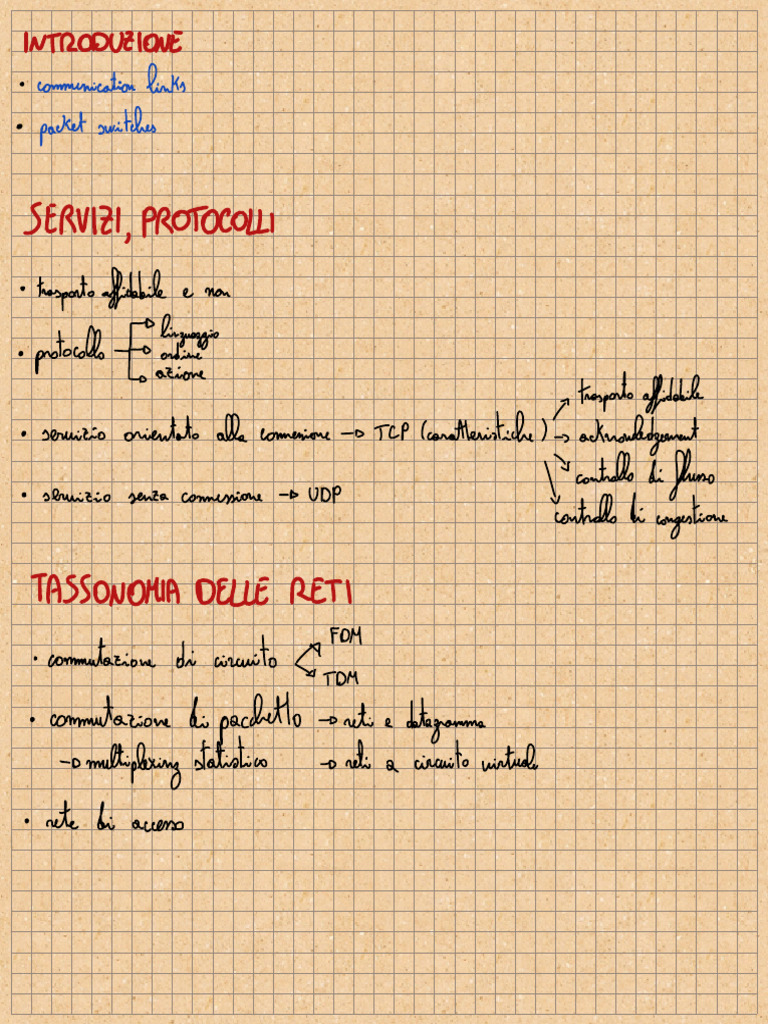 INTRODUZIONE
• communication links
• packet switches
SERVIZI, PROTOCOLLI
• trasporto affidabile e non
• protocollo → linguaggio
→ ordine
→ azione
• servizio orientato alla connessione → TCP (caratteristiche) → trasporto affidabile
→ acknowledgement
→ controllo di flusso
→ controllo di congestione
• servizio senza connessione → UDP
TASSONOMIA DELLE RETI
• commutazione di circuito → FDM
→ TDM
• commutazione di pacchetto → reti e datagramma
→ multiplexing statistico → reti a circuito virtuale
• rete di accesso